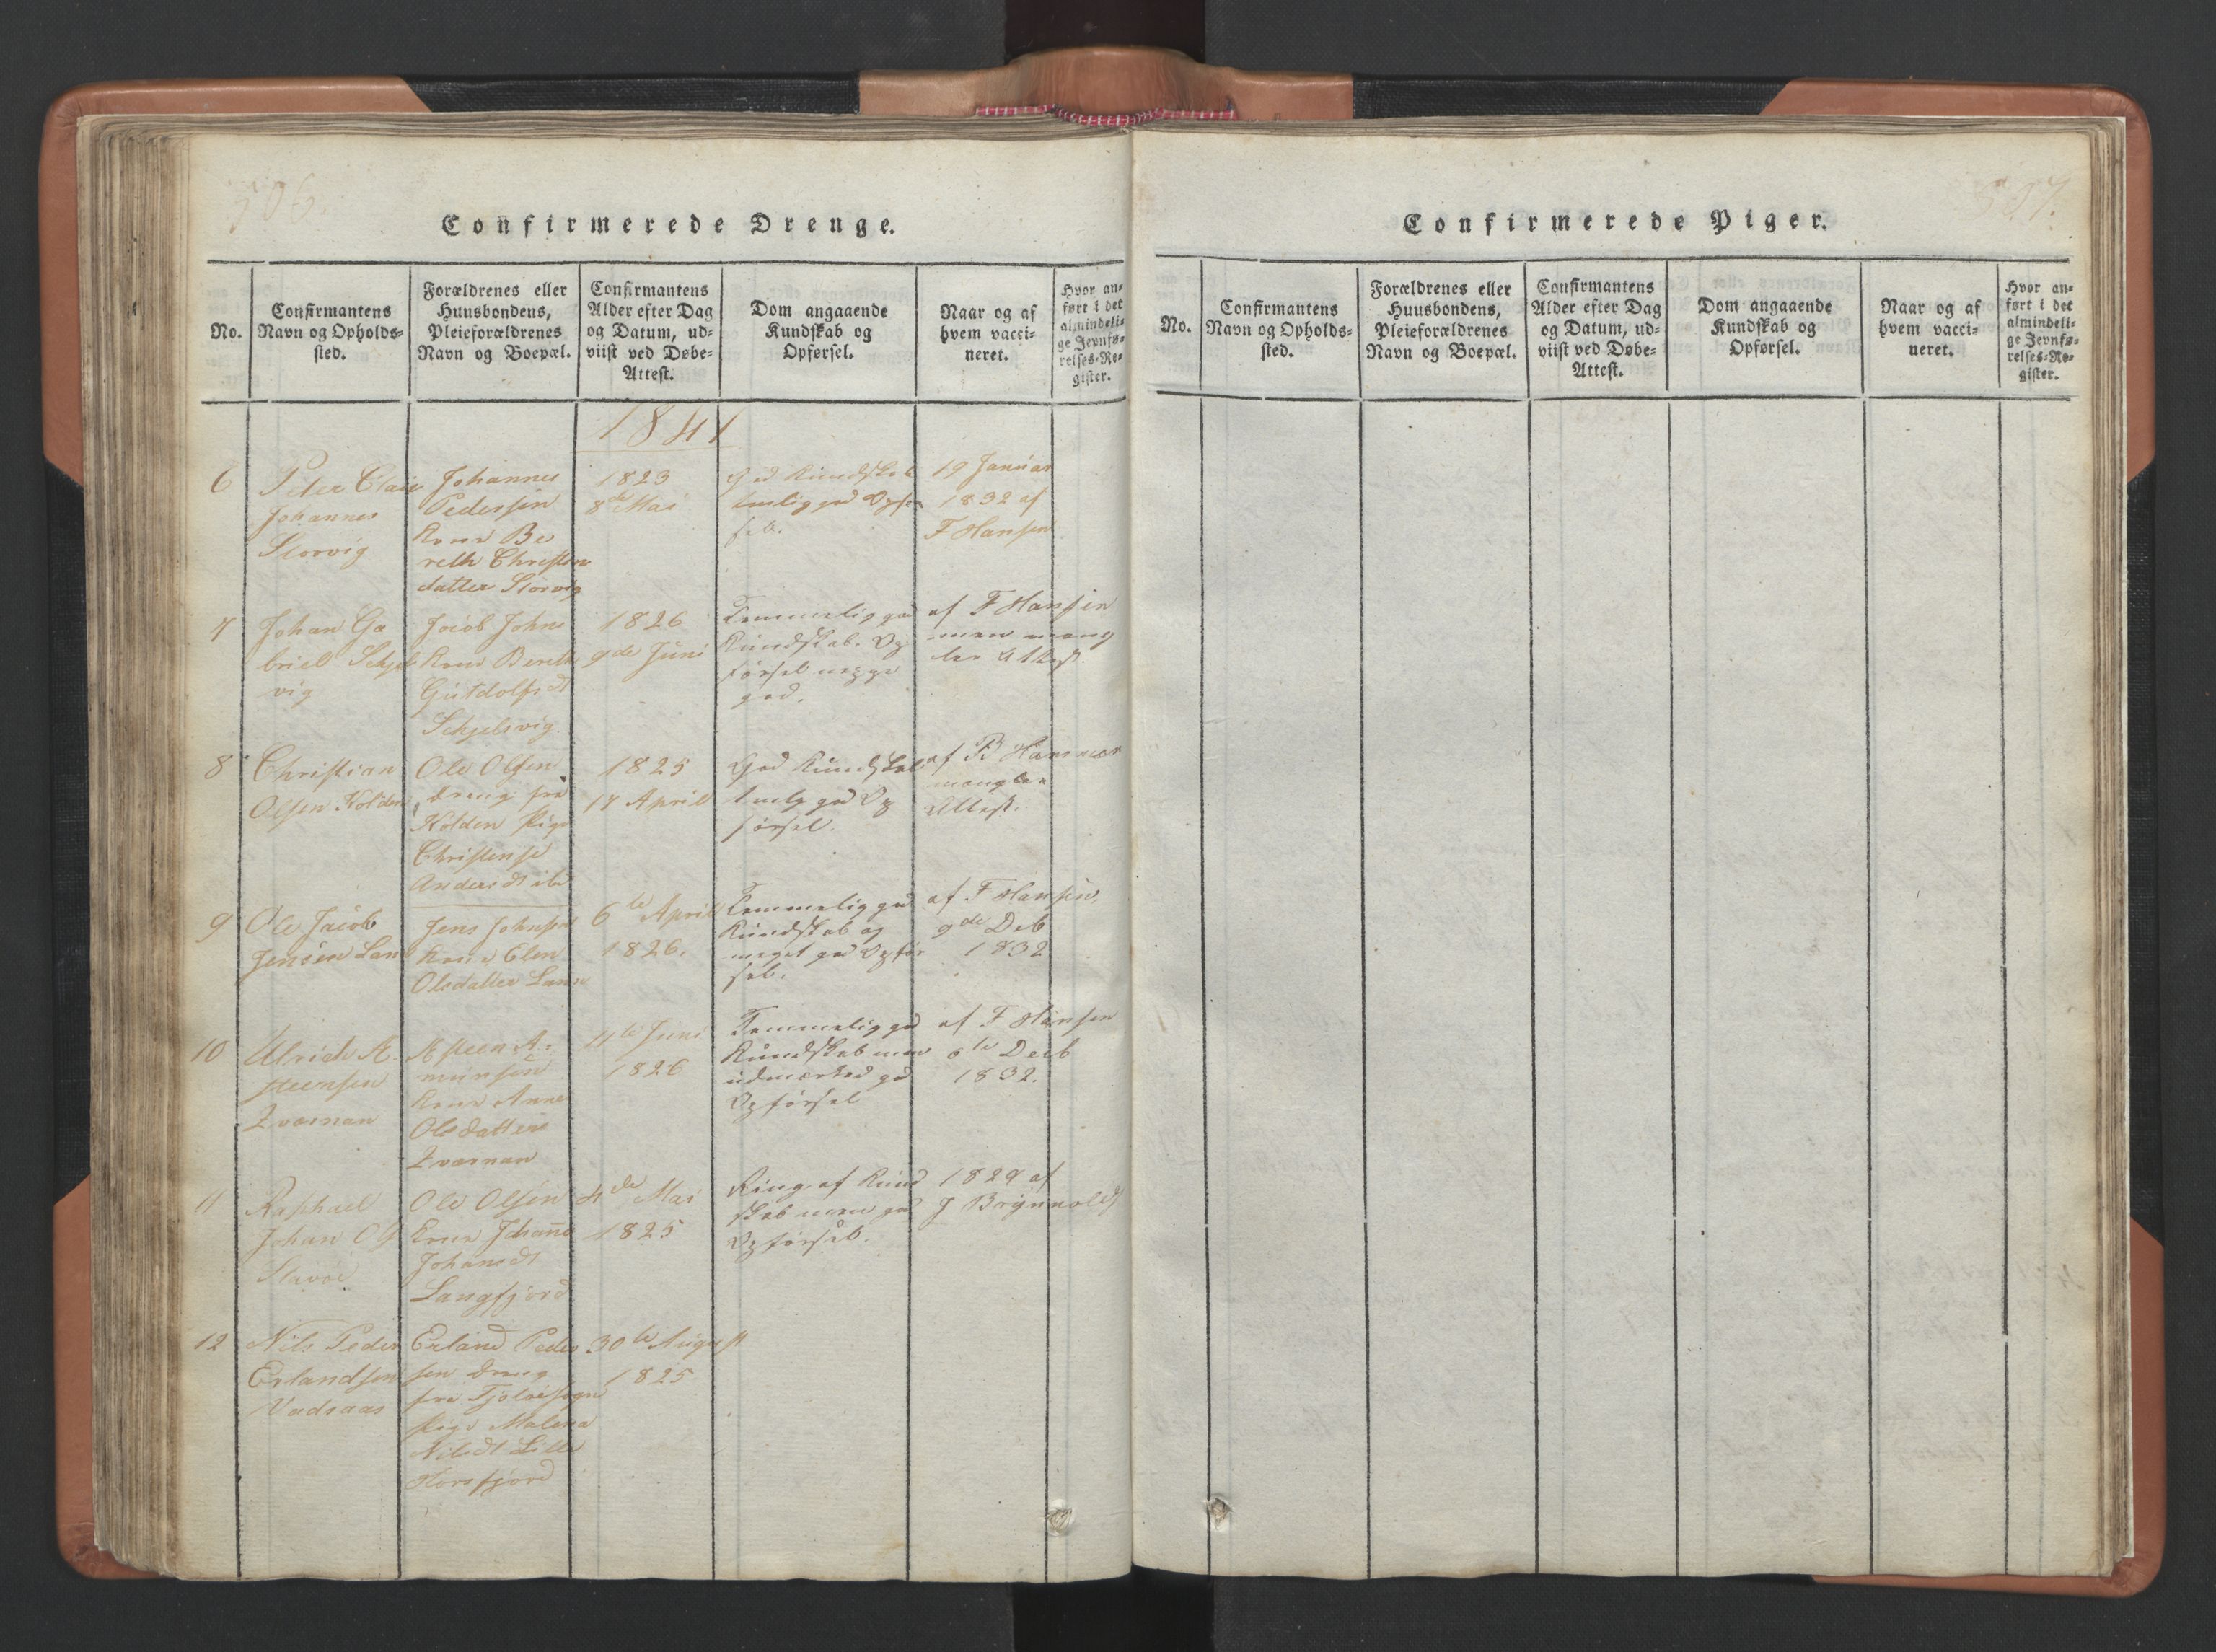 506.
Confirmerede Drenge.
No.
Confirmantens
Navn og Opholds-
sted.
Forældrenes eller
Huusbondens,
Pleieforældrenes
Navn og Boepæl.
Confirmantens
Alder efter Dag
og Datum, ud-
viist ved Døbe-
Attest.
Dom angaaende
Kundskab og
Opførsel.
Naar og af
hvem vacci-
neret.
Hvor an-
ført i det
almindeli-
ge Jevnfø-
relses-Re-
gister.
1841
6
Peter
Johannes
Storvig
Johannes
Pedersen
Kone Be
reth Christen
datter Storvig
1823
8de Mai
God Kundskab
temlig god Opfør
sel.
19 Januar
1832 af
F Hansen
7
Johan Ga
briel Schjels
vig
Jacob Johns
Kone Bereth
Schjelsvig
1826
9de Juni
Temmelig god
Kundskab. Op
førsel neppe
god.
af F Hansen
men mang
ler Attest.
8
Christian
Olsen Holden
Ole Olsen
dreng fra
Holden pige
Christense
Andersdt ibd
1825
17 April
God Kundskab
temlg god Op
førsel.
af
mangler
Attest.
9
Ole Jacob
Jensen
Jens Johnsen
Kone Elen
Olsdatter
6te April
1826.
Temmelig god
Kundskab og
meget god Opfør
sel.
af F Hansen
9de Deb
1832
10
Ulrich A-
steensen
Asteen A-
munsen
Kone Anne
Olsdatter
4de Juni
1826
Temmelig god
Kundskab men
udmærked god
Opførsel
af F Hansen
6te Decb
1832.
11
Raphael
Johan
Ole Olsen
Kone Johanne
Johansdt
Langfjord
4de Mai
1825
Ring af Kund
skab men god
Opførsel.
1829 af
J Brynnolds
12
Nils Peder
Erlandsen
Vadsaas
Erland Peder
sen dreng
fra Tjøtøe sogn
pige Malena
Nilsdt Lille
Horsfjord
30te August
1825
507.
Confirmerede Piger.
No.
Confirmantens
Navn og Opholds-
sted.
Forældrenes eller
Huusbondens,
Pleieforældrenes
Navn og Boepæl.
Confirmantens
Alder efter Dag
og Datum, ud-
viist ved Døbe-
Attest.
Dom angaaende
Kundskab og
Opførsel.
Naar og af
hvem vacci-
neret.
Hvor an-
ført i det
almindeli-
ge Jevnfø-
relses-Re-
gister.